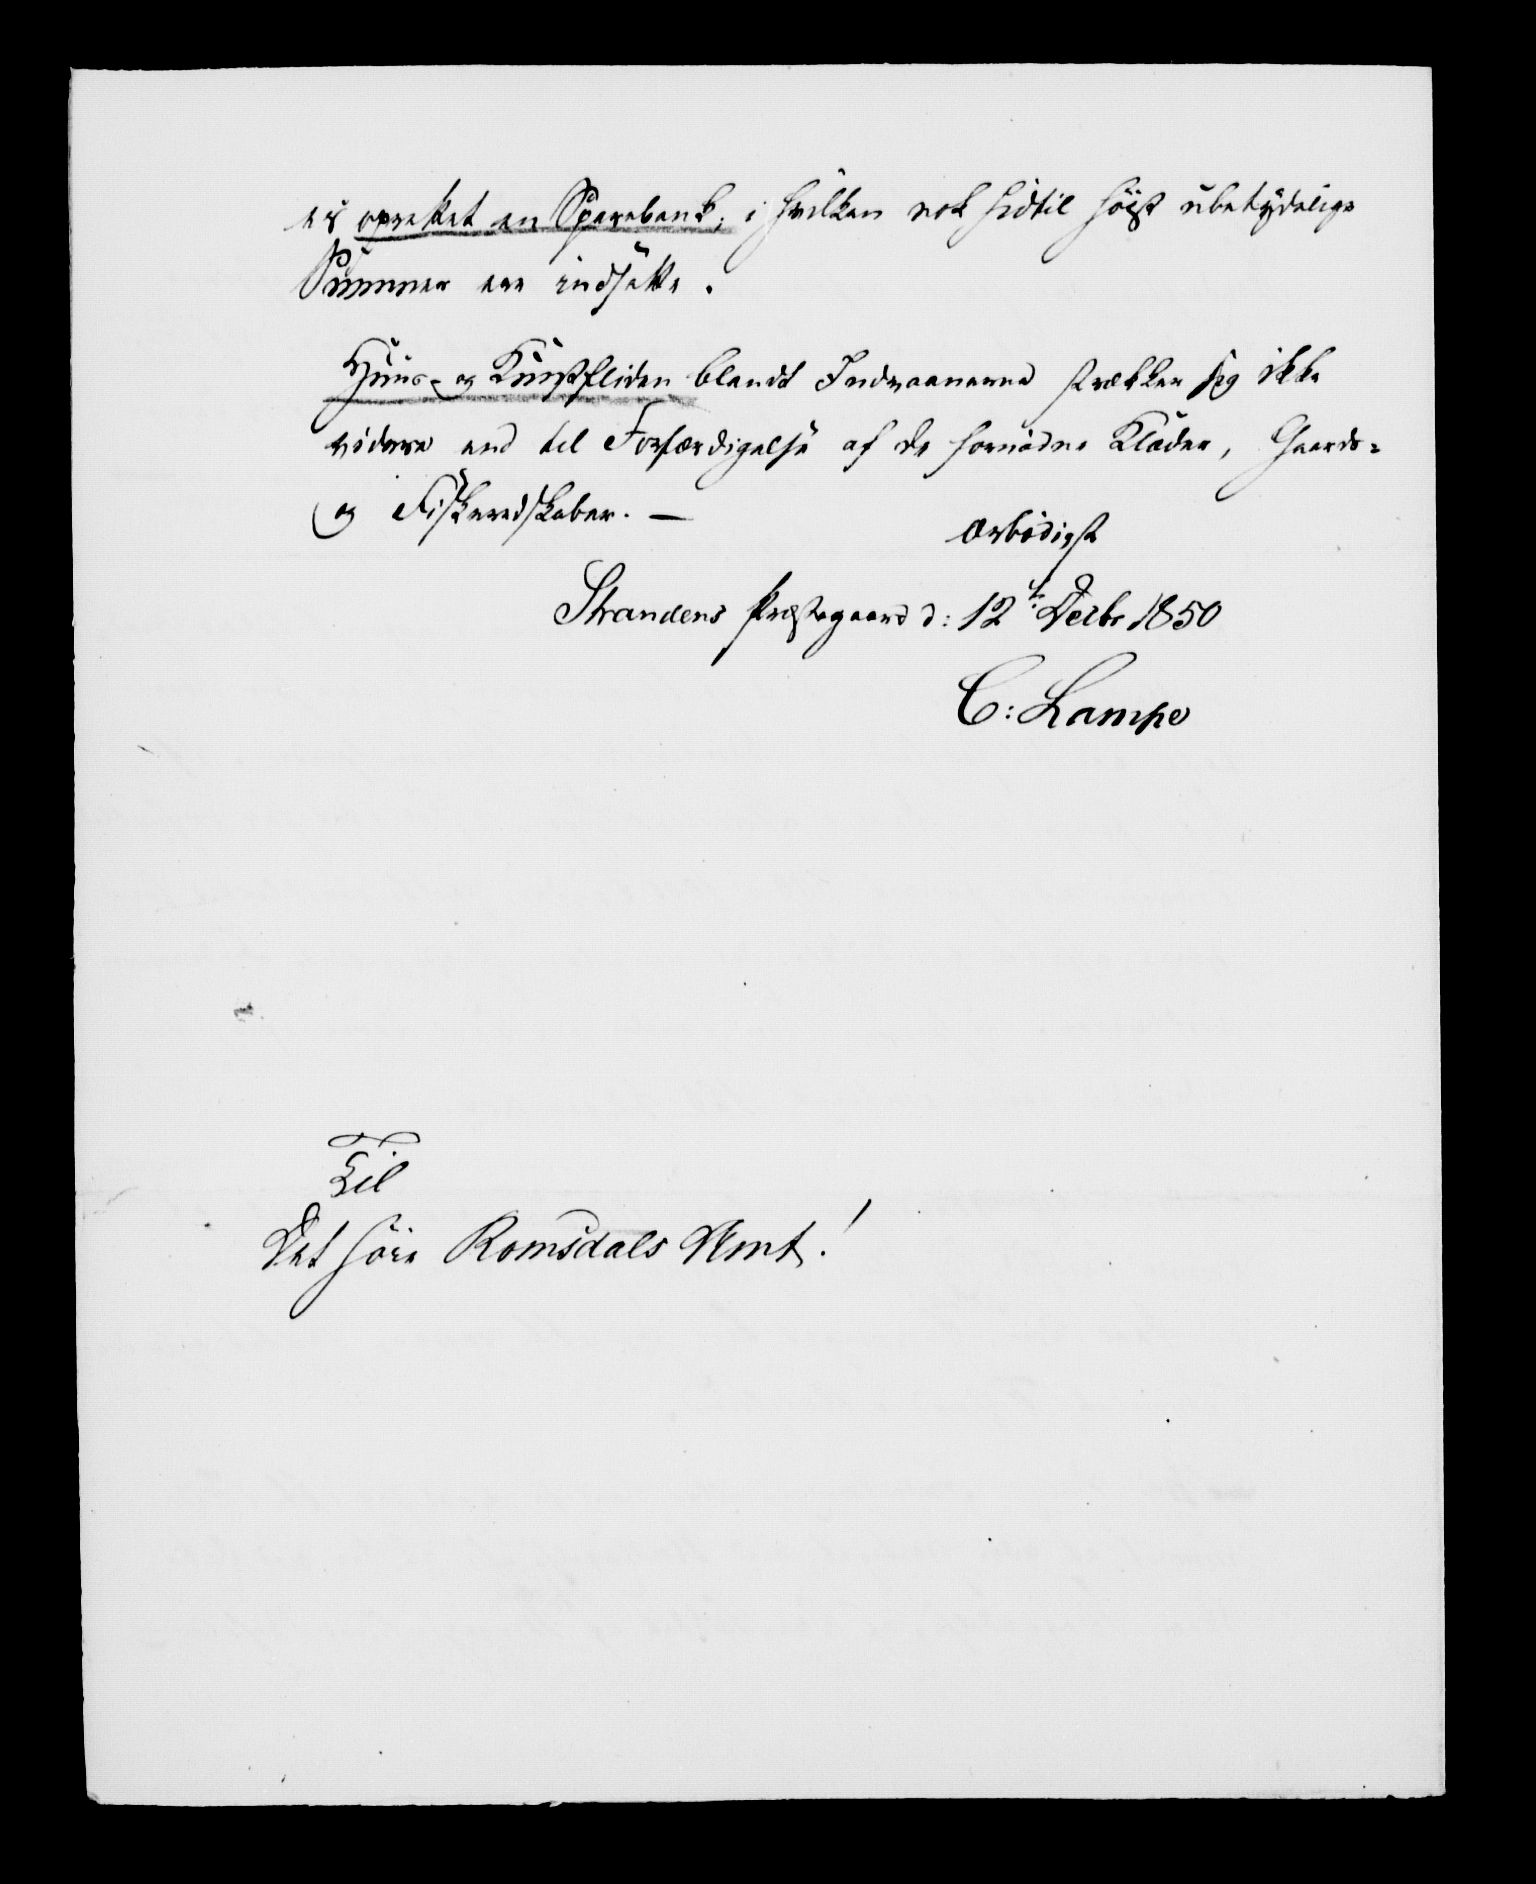 er oprettet en Sparebank, i hvilken nok hidtil höist ubetydelige
Summer ere indsatte.
Huus- og Kunstfliden blandt Indvaanerne strækker sig ikke
videre end til Forfærdigelse af de fornødne Klæder, Gaards-
og Fiskeredskaber. —
Ærbødigst
Strandens Præstegaard d: 12te Decbr 1850
C: Lampe
Til
Det höie Romsdals Amt!